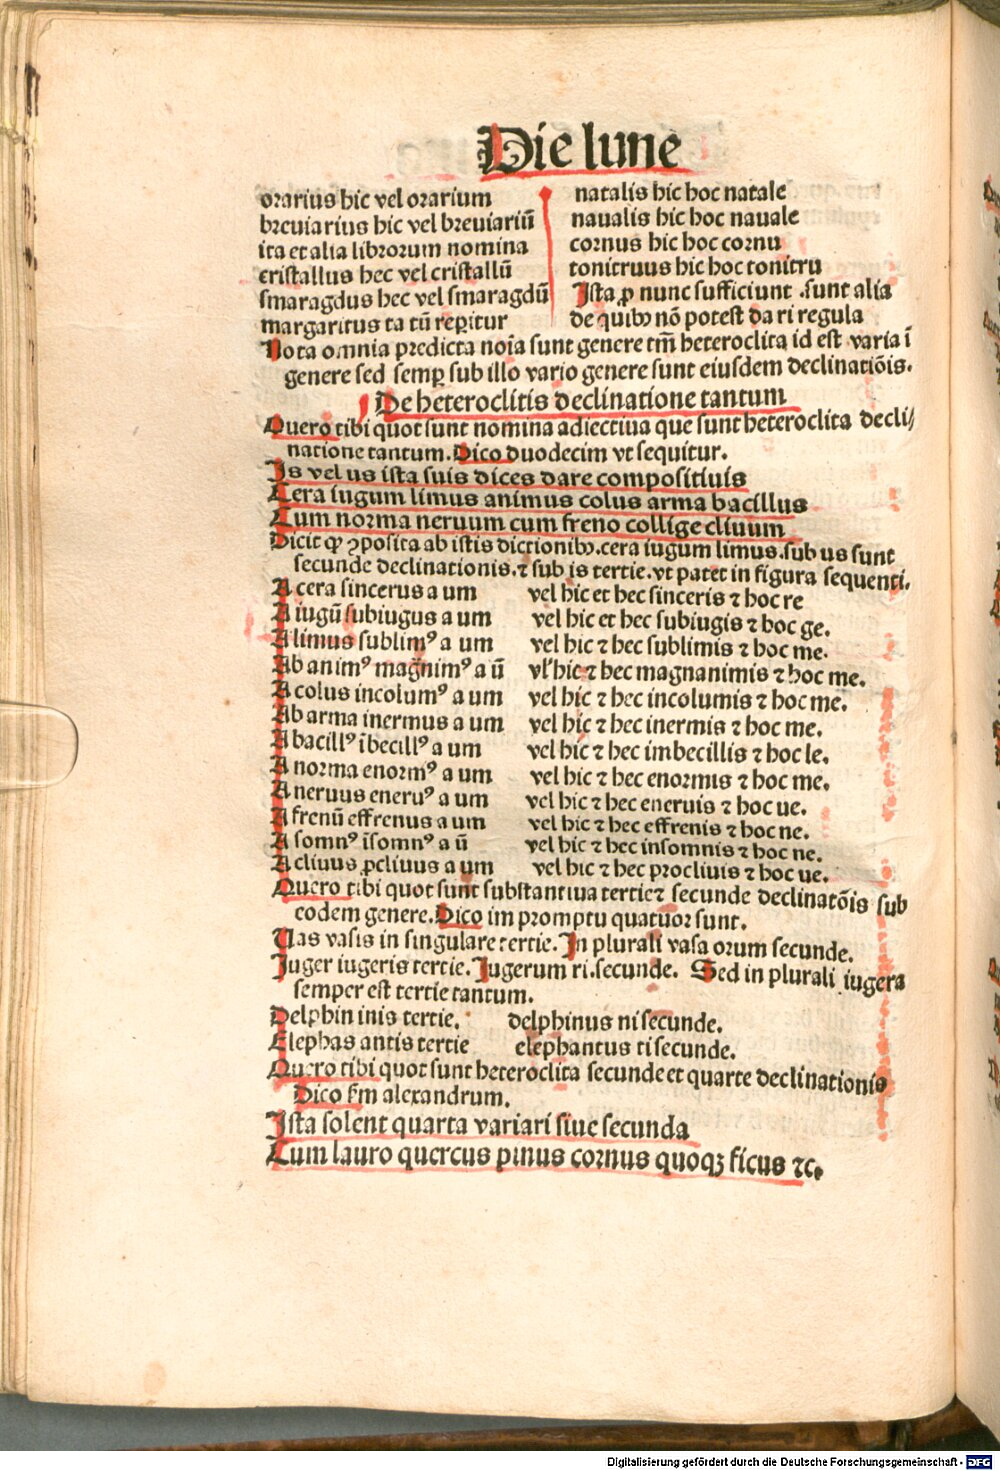 Die lune
orarius hic vel orarium
breuiarius hic vel breuiariũ
ita et alia librorum nomina
cristallus hec vel cristallũ
smaragdus hec vel smaragdũ
margaritus ta tũ reꝑitur
natalis hic hoc natale
naualis hic hoc nauale
cornus hic hoc cornu
tonitruus hic hoc tonitru
Ista ꝓ nunc sufficiunt .sunt alia
de quibꝰ nõ potest da ri regula
Nota omnia predicta noĩa sunt genere tm̃ heteroclita id est varia ĩ
genere sed semꝑ sub illo vario genere sunt eiusdem declinatiõis.
De heteroclitis declinatione tantum
Quero tibi quot sunt nomina adiectiua que sunt heteroclita decli/
natione tantum. Dico duodecim vt sequitur.
Is vel us ista suis dices dare compositiuis
Cera iugum limus animus colus arma bacillus
Cum norma neruum cum freno collige cliuum
Dicit ꝙ ꝯposita ab istis dictionibꝰ. cera iugum limus. sub us sunt
secunde declinationis. ⁊ sub is tertie. vt patet in figura sequenti.
A cera sincerus a um vel hic et hec sinceris ⁊ hoc re
A iugũ subiugus a um vel hic et hec subiugis ⁊ hoc ge.
A limus sublimꝰ a um vel hic ⁊ hec sublimis ⁊ hoc me.
Ab animꝰ magñimꝰ a ũ vl̓ hic ⁊ hec magnanimis ⁊ hoc me.
A colus incolumꝰ a um vel hic ⁊ hec incolumis ⁊ hoc me.
Ab arma inermus a um vel hic ⁊ hec inermis ⁊ hoc me.
A bacillꝰ ĩbecillꝰ a um vel hic ⁊ hec imbecillis ⁊ hoc le.
A norma enormꝰ a um vel hic ⁊ hec enormis ⁊ hoc me.
A neruus eneruꝰ a um vel hic ⁊ hec eneruis ⁊ hoc ue.
A frenũ effrenus a um vel hic ⁊ hec effrenis ⁊ hoc ne.
A somnꝰ ĩsomnꝰ a ũ vel hic ⁊ hec insomnis ⁊ hoc ne.
A cliuus ꝓcliuus a um vel hic ⁊ hec procliuis ⁊ hoc ue.
Quero tibi quot sunt substantiua tertie⁊ secunde declinatõis sub
eodem genere. Dico im promptu quatuor sunt.
Uas vasis in singulare tertie. In plurali vasa orum secunde.
Iuger iugeris tertie. Iugerum ri. secunde. Sed in plurali iugera
semper est tertie tantum.
Delphin inis tertie. delphinus ni secunde.
Elephas antis tertie elephantus ti secunde.
Quero tibi quot sunt heteroclita secunde et quarte declinationis
Dico ẜm alexandrum.
Ista solent quarta variari siue secunda
Cum lauro quercus pinus cornus quoqꝫ ficus ⁊c.
Digitalisierung gefördert durch die Deutsche Forschungsgemeinschaft - DFG